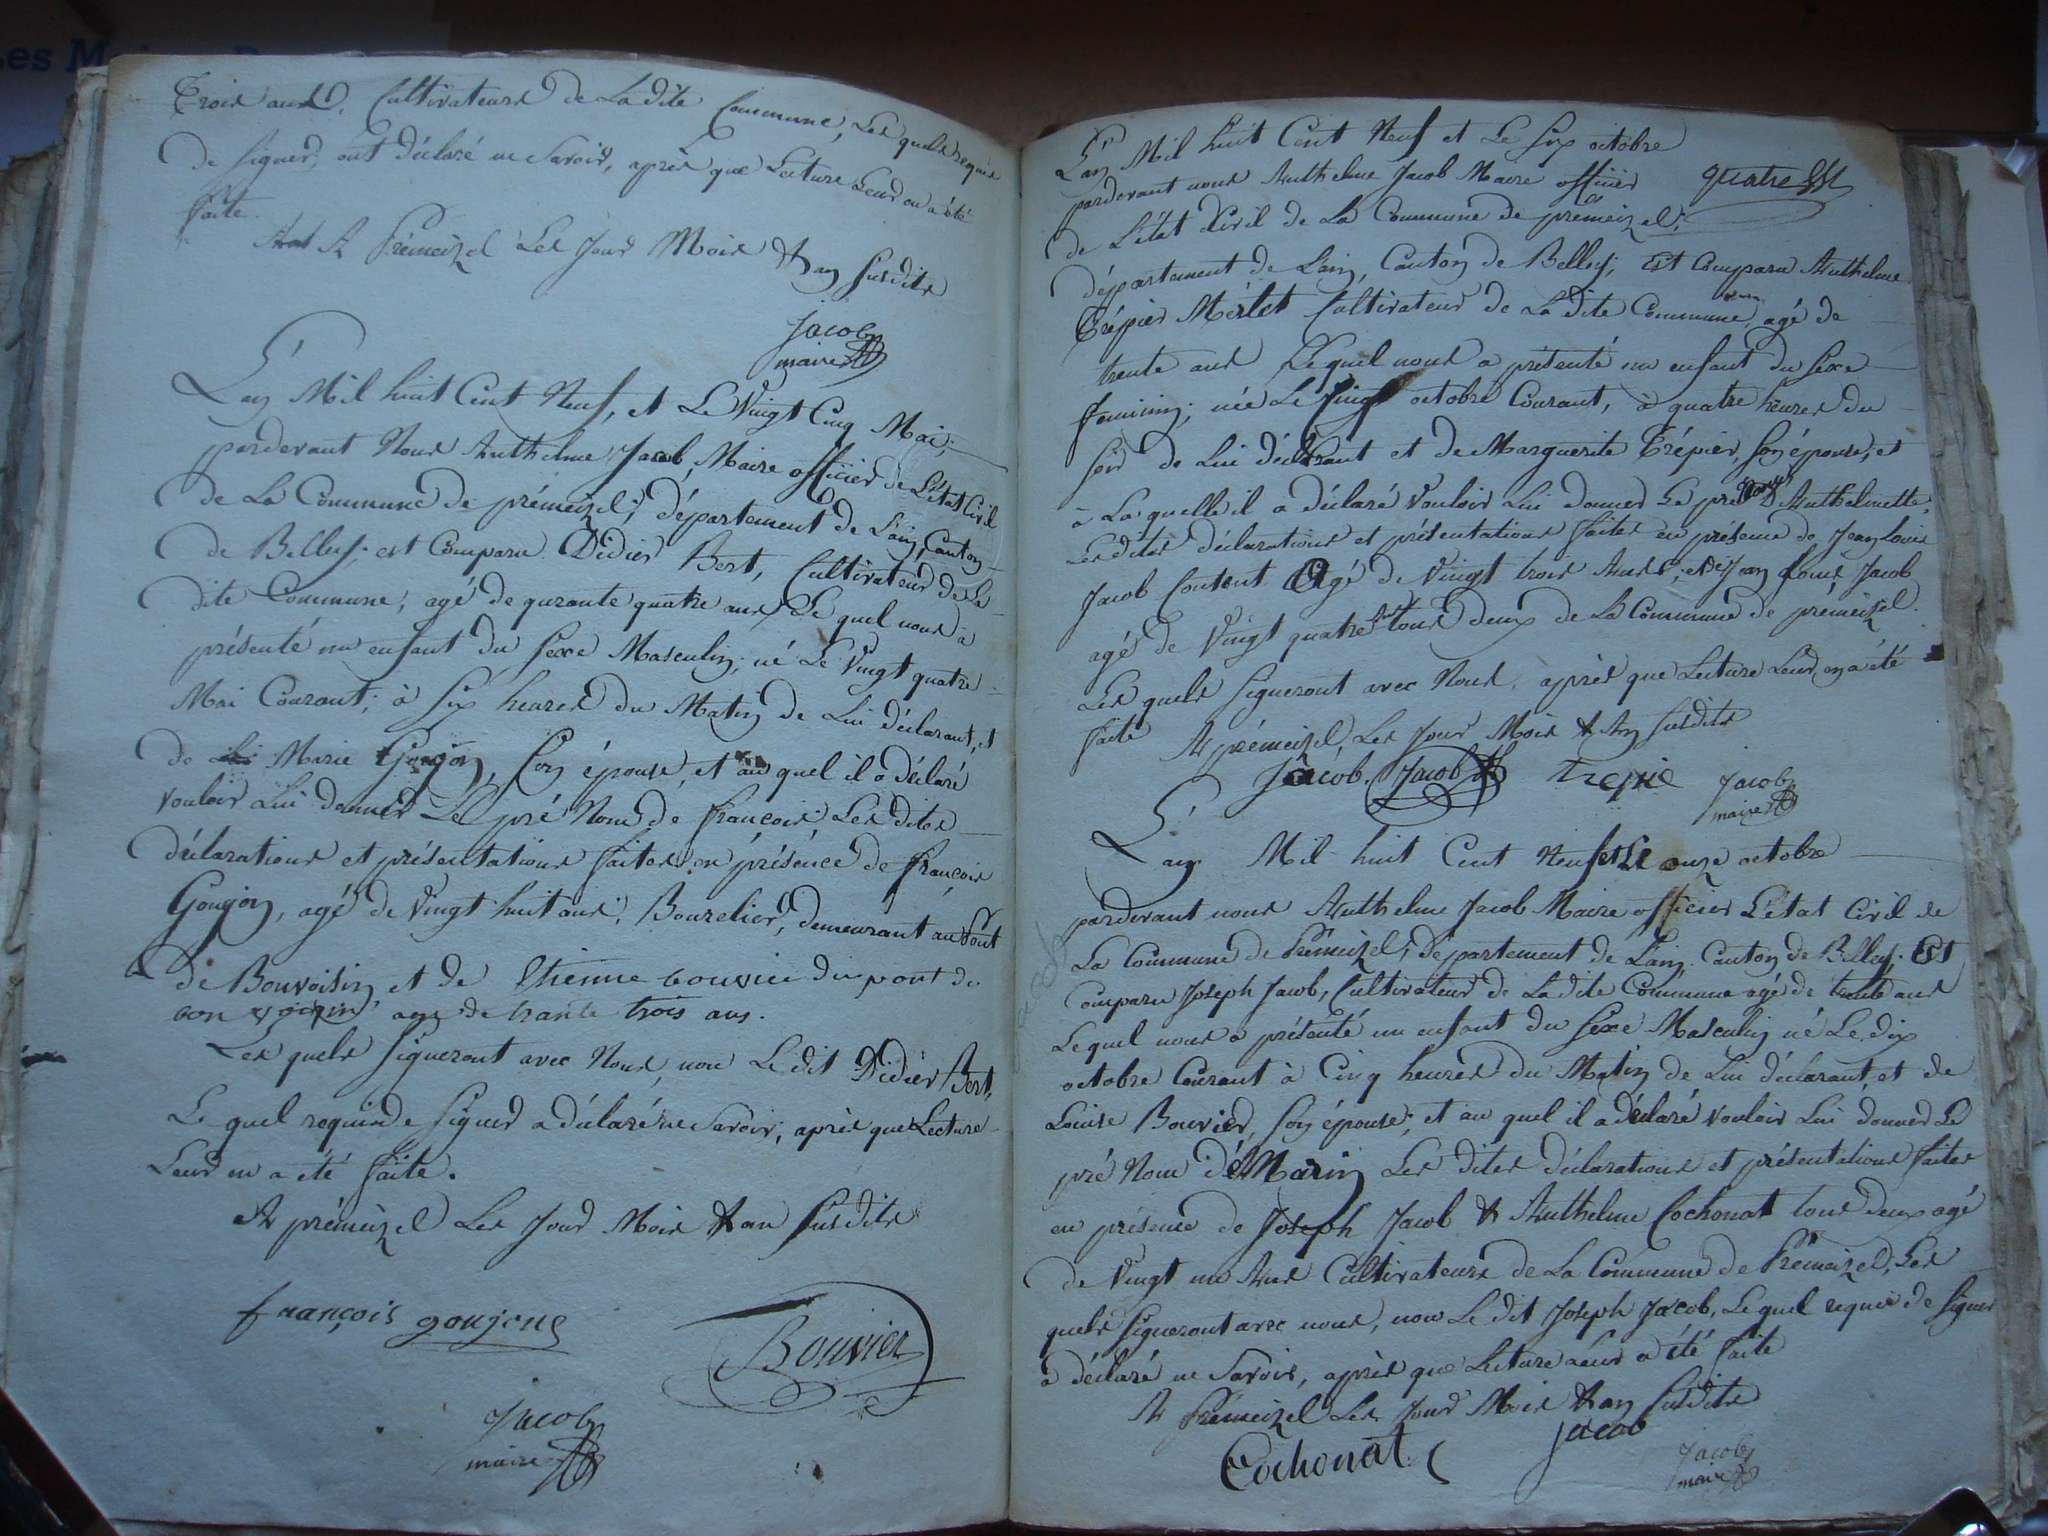 Les M
Trois ans, Cultivateurs de La dite Commune, Les quels requis
de signer, ont déclaré ne Savoir, après que Lecture Leur en a été
faite.
A Prémeizel Les Jour Mois & an susdits
Jacob
maire
L'an Mil huit Cent Neuf, et Le Vingt Cinq Mai,
pardevant Nous Anthelme Jacob, Maire officier de L'état Civil
de La Commune de prémeizel, département de L'ain, Canton
de Belley, est Comparu Didier Bert, Cultivateur de La
dite Commune, agé de qurante quatre ans Le quel nous à
présenté un enfant du sexe Masculin, né Le Vingt quatre
Mai Courant, à Six heures du Matin de Lui déclarant, et
de Marie Goujon, son épouse, et au quel il a déclaré
vouloir Lui donner Le pré Nom de françois Les dites
déclarations et présentations faites en présence de françois
Goujon, agé de Vingt huit ans, Bourelier, demeurant au Pont
de Bonvoisin et de Etienne bouvier du pont de
bon voisin age de trante trois ans.
Les quels signeront avec Nous, non Le dit Didier Bert,
Le quel requi de signer a déclaré ne Savoir, après que Lecture
Leur en a été faite.
A prémeizel Les Jour Mois & an susdits
françois goujong
Bouvier
Jacob
maire
L'an Mil huit Cent Neuf et Le six octobre
pardevant nous Anthelme Jacob Maire officier
quatre
de L'état Civil de La Commune de prémeizel,
département de L'ain, Canton de Belley, Est Comparu Anthelme
Trépier Merlet Cultivateur de La dite Commune, agé de
trente ans Le quel nous a présenté un enfant du sexe
feminin, née Le octobre Courant, à quatre heures du
soir de Lui déclarant et de Marguerite Trépier, son épouse, et
à La quelle il a déclaré vouloir Lui donner Le pré Nom d'Anthelmette,
Les dites déclarations et présentations faites en présence de Jean Louis
Jacob Coutent Agé de Vingt trois Ans, et de Jean Louis Jacob
agé de Vingt quatre ans tous deux de La Commune de prémeizel.
Les quels signeront avec Nous, après que Lecture Leur en a été
faite A prémeizel, Les Jour Mois & An susdits
Jacob Jacob Trepie Jacob
maire
L'an Mil huit Cent Neuf et Le onze octobre
pardevant nous Anthelme Jacob Maire officier L'état Civil de
La Commune de Prémeizel, département de L'ain Canton de Belley. Est
Comparu Joseph Jacob, Cultivateur de La dite Commune agé de trente ans
Le quel nous a présenté un enfant du sexe Masculin né Le dix
octobre Courant à Cinq heures du Matin de Lui déclarant, et de
Louise Bouvier, son épouse, et au quel il a déclaré vouloir Lui donner Le
pré Nom de Marin Les dites déclarations et présentations faites
en présence de Joseph Jacob & Anthelme Cochonat tous deux agé
de Vingt un Ans Cultivateurs de La Commune de Prémeizel, Les
quels signeront avec nous, non Le dit Joseph Jacob, Le quel requis de signer
a déclaré ne Savoir, après que Lecture Leur a été faite
A Prémeizel Les Jour Mois & an susdits
Cochonat
Jacob
Jacob
maire